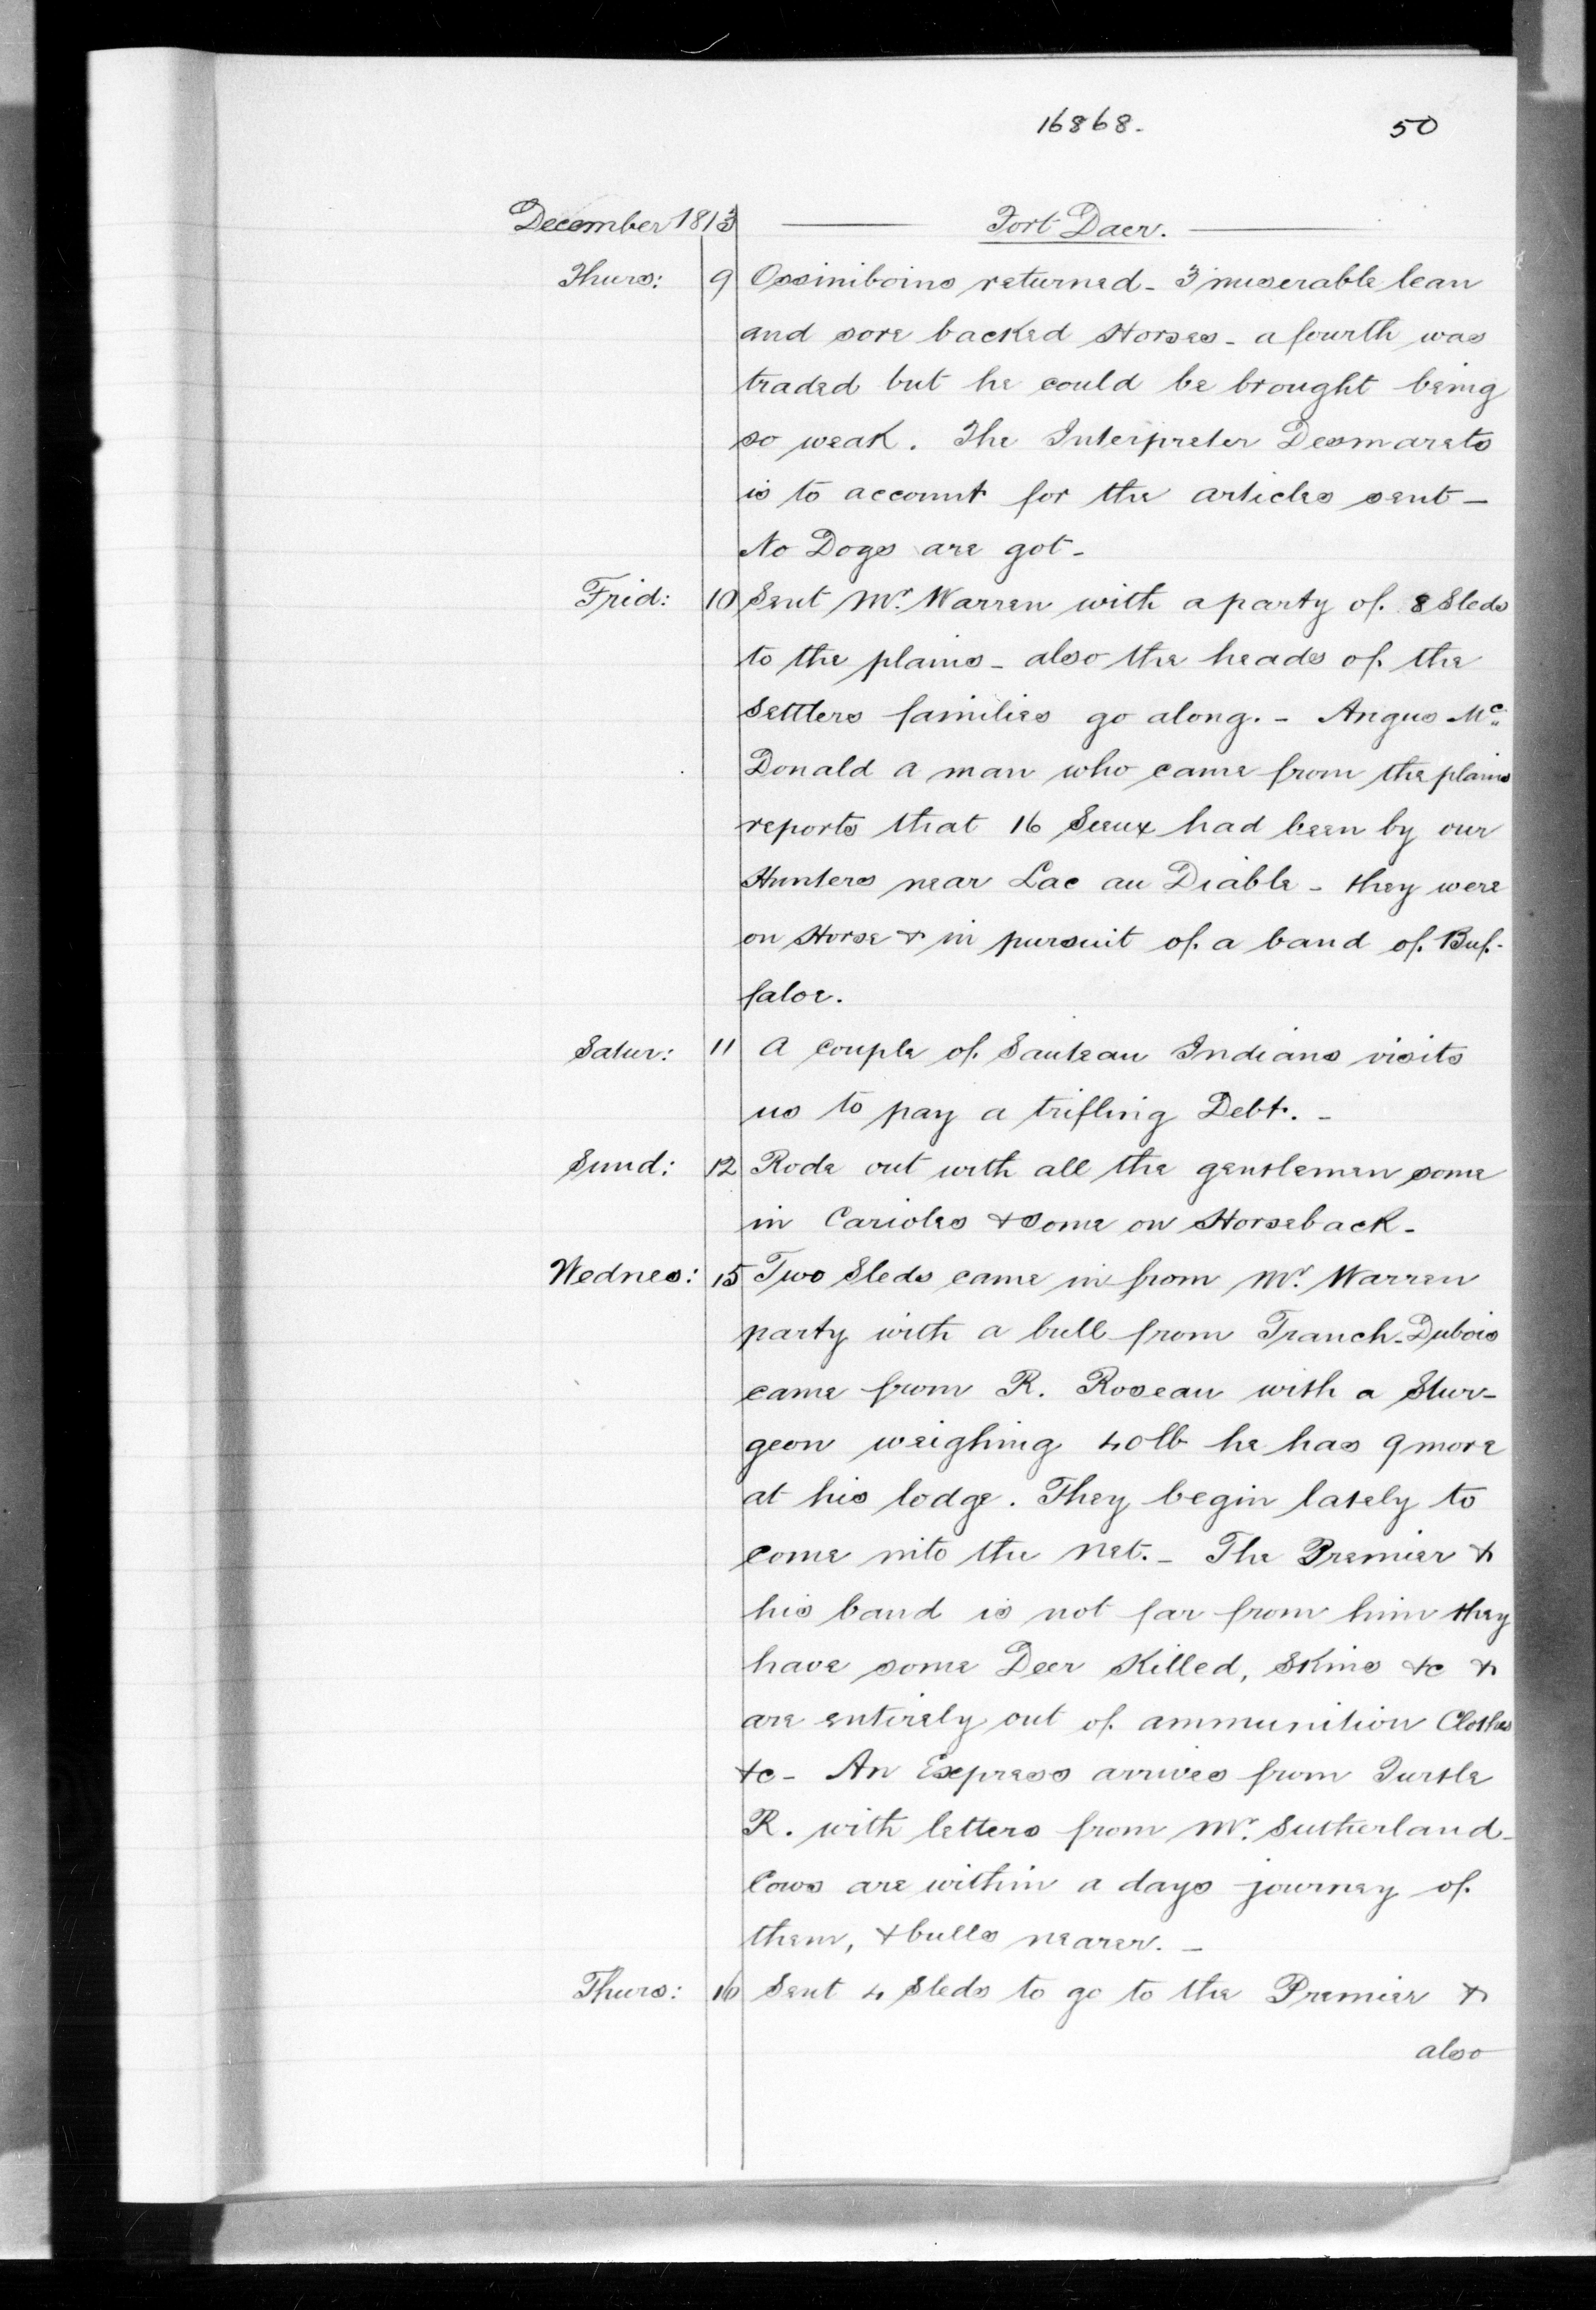 16868. 50
December 1813 Fort Daer.
Thurs: 9 Ossiniboins returned - 3 miserable lean
and sore backed Horses - a fourth was
traded but he could be brought being
so weak. The Interpreter Desmarets
is to account for the articles sent -
No Dogs are got -
Frid: 10 Sent Mr. Warren with a party of 8 Sleds
to the plains - also the heads of the
Settlers families go along. - Angus Mc
Donald a man who came from the plains
reports that 16 Seeux had been by our
Hunters near Lac au Diable - they were
on Horse & in pursuit of a band of Buf-
faloe.
Satur: 11 A couple of Sauteau Indians visits
us to pay a trifling Debt. -
Sund: 12 Rode out with all the gentlemen some
in Carioles & some on Horseback -
Wednes: 15 Two Sleds came in from Mr. Warren
party with a bull from Tranch-Dubois
came from R. Roseau with a Stur-
geon weighing 40 lb he has 9 more
at his lodge. They begin lately to
come into the net. - The Premier &
his band is not far from him they
have some Deer Killed, Skins &c &
are entirely out of ammunition Clothes
&c - An Express arrives from Turtle
R. with letters from Mr. Sutherland -
Cows are within a days journey of
them, & bulls nearer. -
Thurs: 16 Sent 4 Sleds to go to the Premier &
also